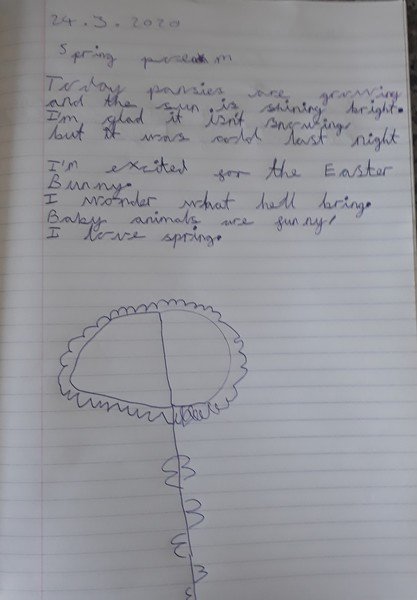 24.3.2020
Spring poem
Today pansies are growing
and the sun is shining bright.
I'm glad it isn't snowing,
but it was cold last night
I'm excited for the Easter
Bunny.
I wonder what hell bring.
Baby animals are funny,
I love spring.